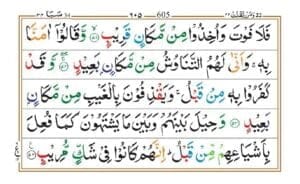 ومن يقنت ٢٢ ٦٠٥ 605 سبا ٣٤
فَلَا فَوْتَ وَاُخِذُوْا مِنْ مَّكَانٍ قَرِيْبٍ ۙ ٥١ وَّقَالُوْۤا اٰمَنَّا
بِهٖ ۚ وَاَنّٰى لَهُمُ التَّنَاوُشُ مِنْ مَّكَانٍۭ بَعِيْدٍ ۚ ٥٢ وَّقَدْ
كَفَرُوْا بِهٖ مِنْ قَبْلُ ۚ وَيَقْذِفُوْنَ بِالْغَيْبِ مِنْ مَّكَانٍۭ
بَعِيْدٍ ٥٣ وَحِيْلَ بَيْنَهُمْ وَبَيْنَ مَا يَشْتَهُوْنَ كَمَا فُعِلَ
بِاَشْيَاعِهِمْ مِّنْ قَبْلُ ؕ اِنَّهُمْ كَانُوْا فِيْ شَكٍّ مُّرِيْبٍ ٥٤